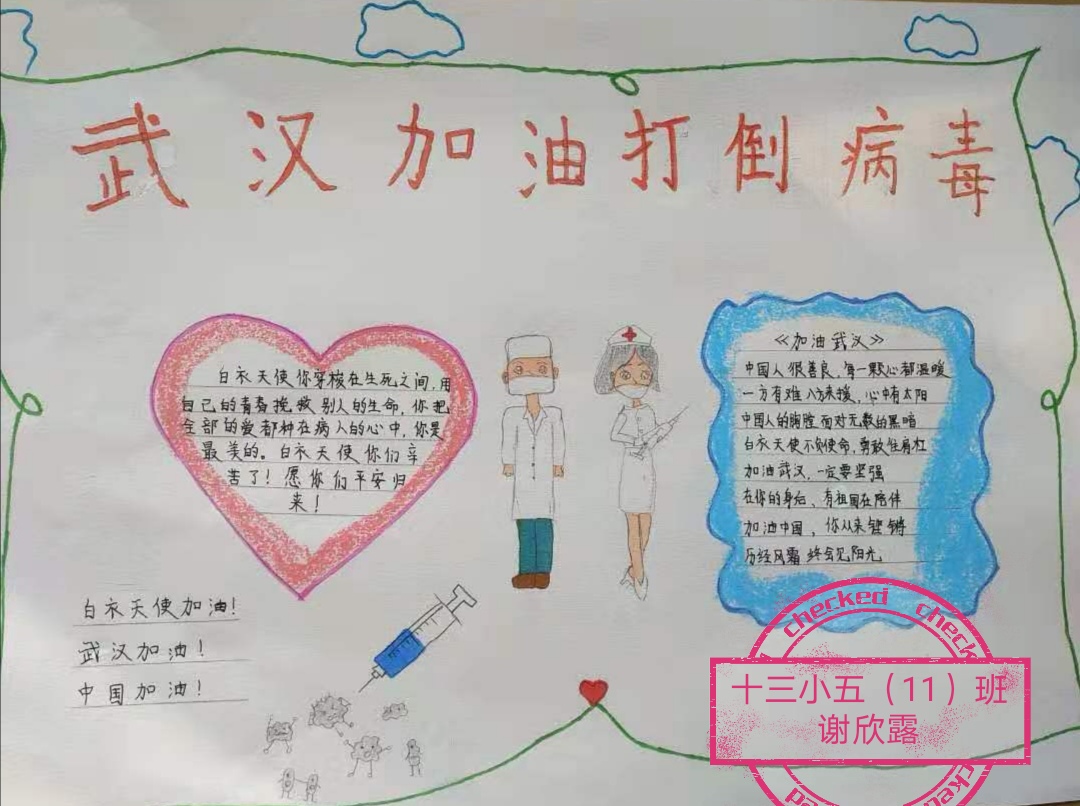 武汉加油打倒病毒
白衣天使你穿梭在生死之间,用
自己的青春挽救别人的生命,你把
全部的爱都种在病人的心中,你是
最美的。白衣天使你们辛
苦了!愿你们平安归
来!
《加油武汉》
中国人很善良,每一颗心都温暖
一方有难八方来援,心中有太阳
中国人的胸膛面对无数的黑暗
白衣天使不负使命,勇敢住肩扛
加油武汉,一定要坚强
在你的身后,有祖国在陪伴
加油中国,你从来铿锵
历经风霜 终会见阳光
白衣天使加油!
武汉加油!
中国加油!
checked checked
十三小五（11）班
谢欣露
checked